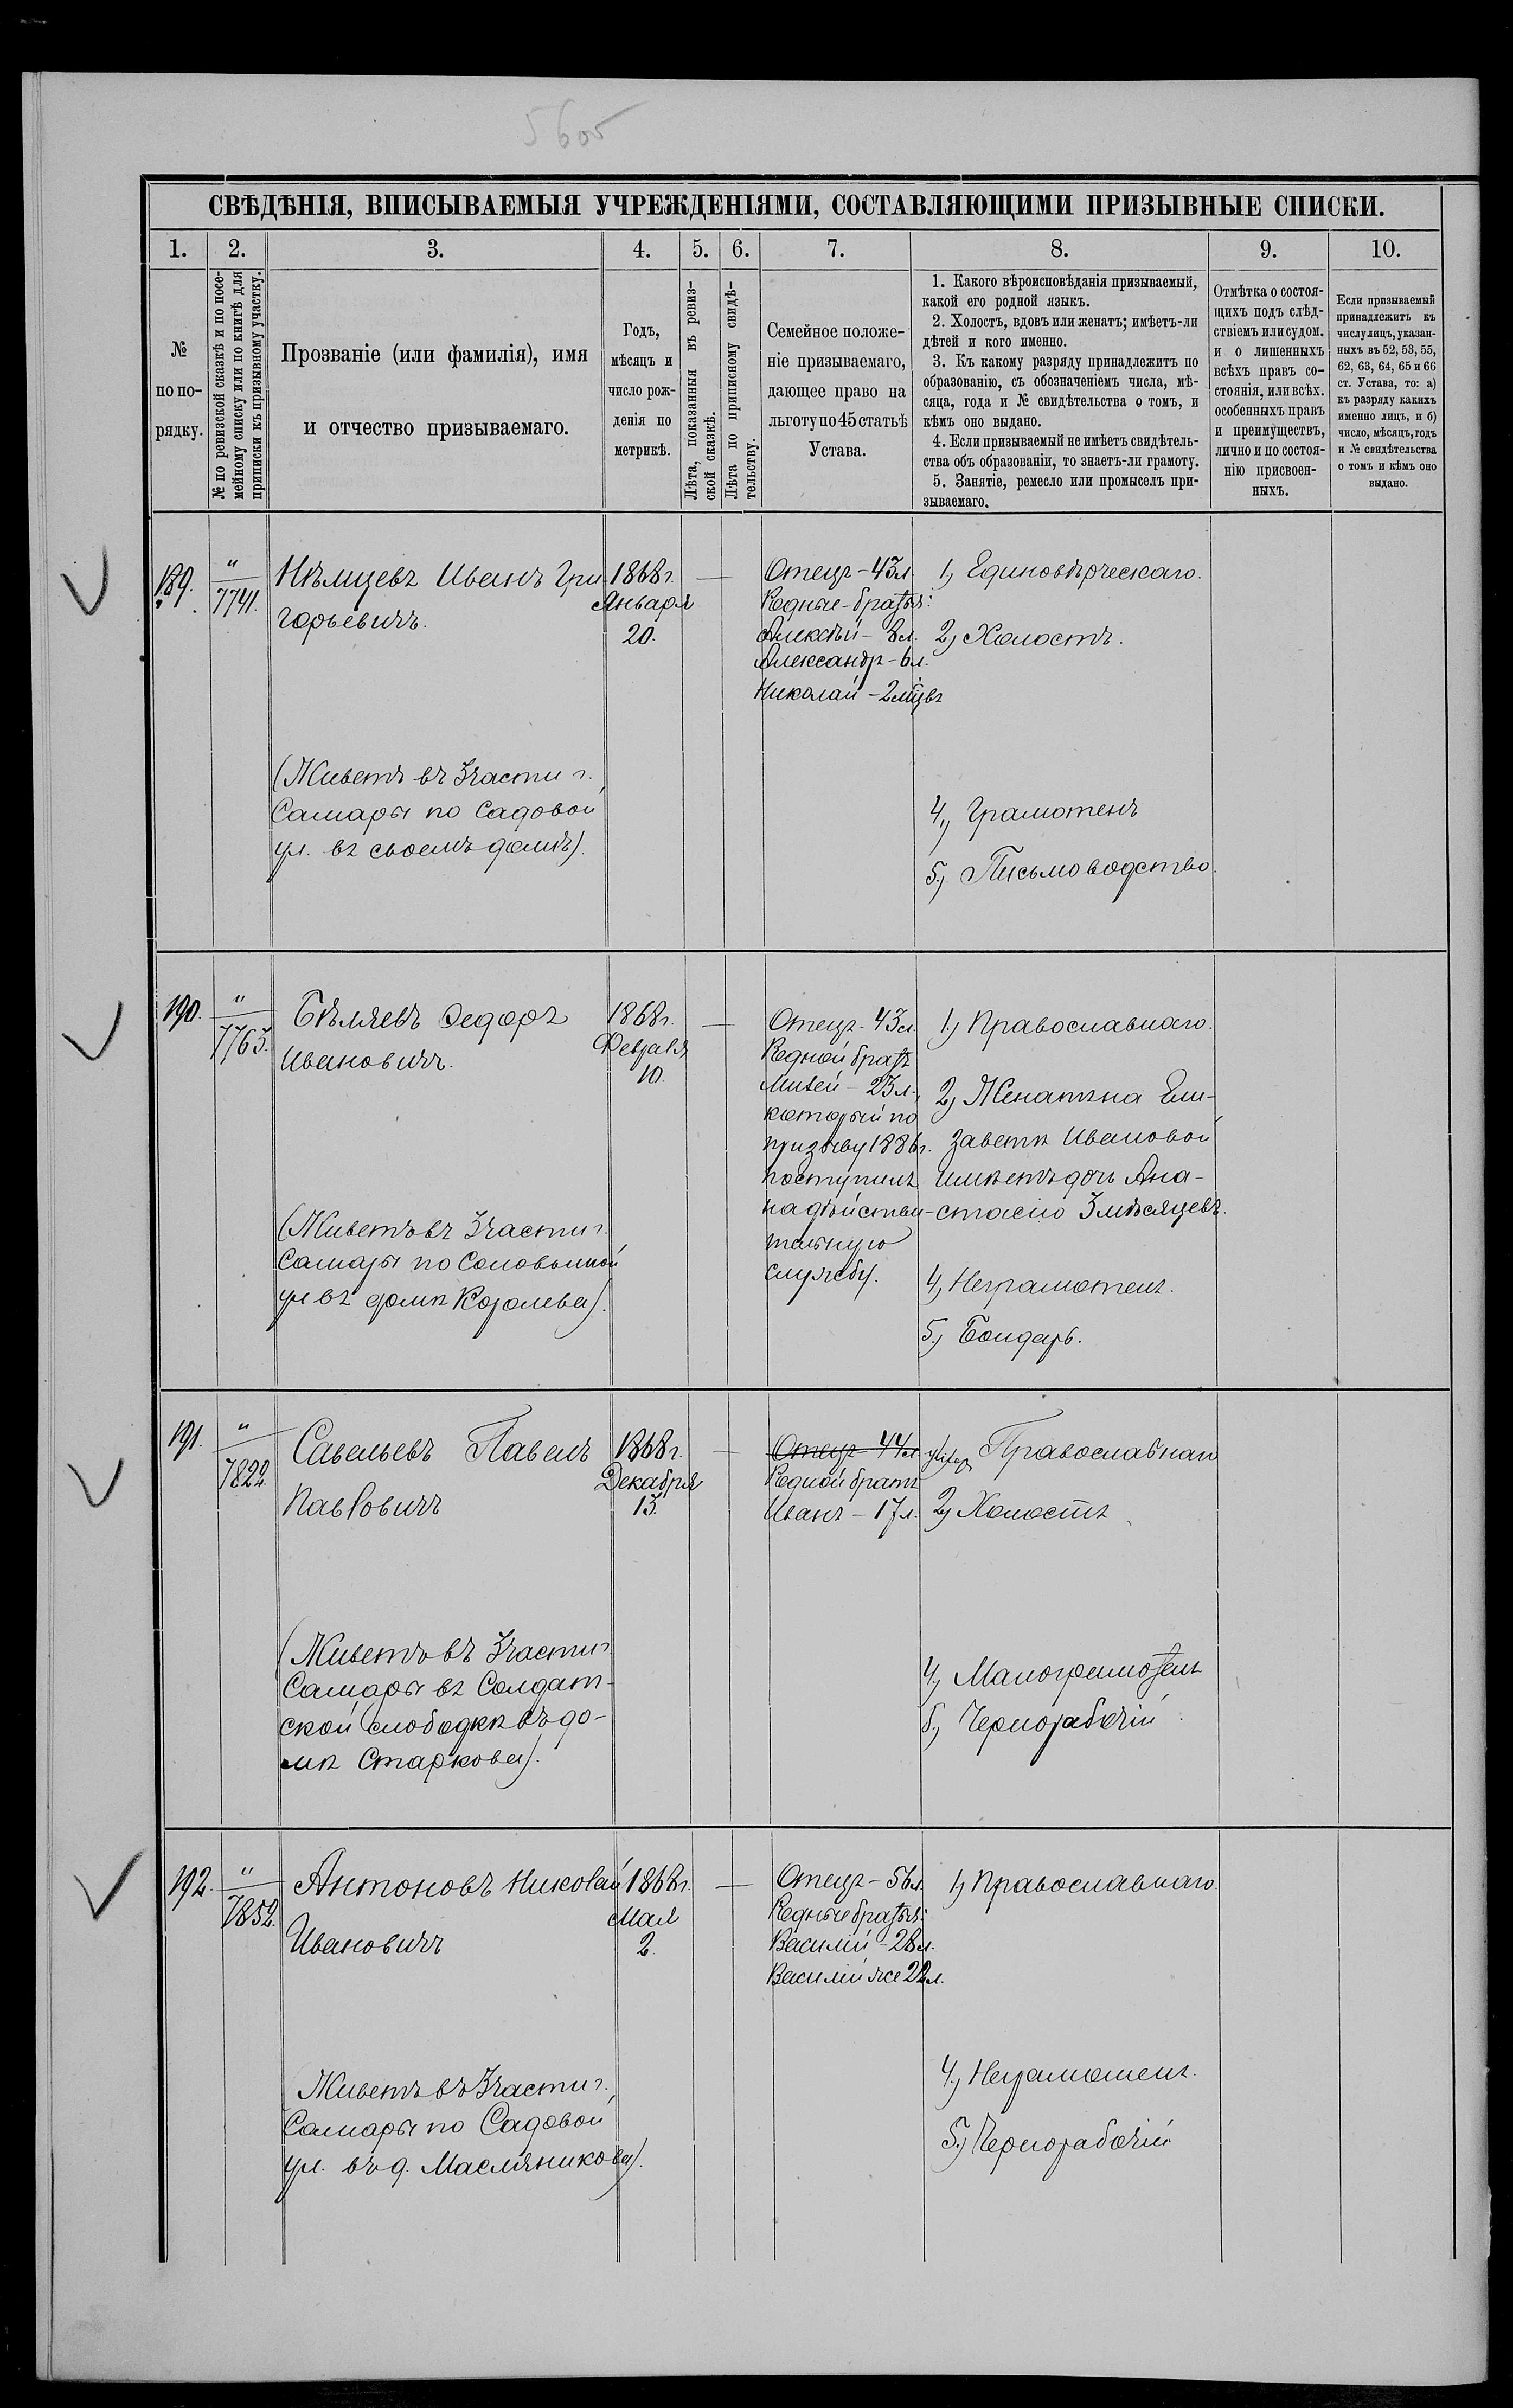 5605
СВѢДѢНІЯ, ВПИСЫВАЕМЫЯ УЧРЕЖДЕНІЯМИ, СОСТАВЛЯЮЩИМИ ПРИЗЫВНЫЕ СПИСКИ.
1. 2. 3. 4. 5. 6. 7. 8. 9. 10.
№
по по-
рядку.
№ по ревизской сказкѣ и по посе-
мейному списку или по книгѣ для
приписки къ призывному участку.
Прозваніе (или фамилія), имя
и отчество призываемаго.
Годъ,
мѣсяцъ и
число рож-
денія по
метрикѣ.
Лѣта, показанныя въ ревиз-
ской сказкѣ.
Лѣта по приписному свидѣ-
тельству.
Семейное положе-
ніе призываемаго,
дающее право на
льготу по 45 статьѣ
Устава.
1. Какого вѣроисповѣданія призываемый,
какой его родной языкъ.
2. Холостъ, вдовъ или женатъ; имѣетъ-ли
дѣтей и кого именно.
3. Къ какому разряду принадлежитъ по
образованію, съ обозначеніемъ числа, мѣ-
сяца, года и № свидѣтельства о томъ, и
кѣмъ оно выдано.
4. Если призываемый не имѣетъ свидѣтель-
ства объ образованіи, то знаетъ-ли грамоту.
5. Занятіе, ремесло или промыселъ при-
зываемаго.
Отмѣтка о состоя-
щихъ подъ слѣд-
ствіемъ или судом.
и о лишенныхъ
всѣхъ правъ со-
стоянія, или всѣх.
особенныхъ правъ
и преимуществъ,
лично и по состоя-
нію присвоен-
ныхъ.
Если призываемый
принадлежитъ къ
числу лицъ, указан-
ныхъ въ 52, 53, 55,
62, 63, 64, 65 и 66
ст. Устава, то: а)
къ разряду какихъ
именно лицъ, и б)
число, мѣсяцъ, годъ
и № свидѣтельства
о томъ и кѣмъ оно
выдано.
189.
"
7741.
Нѣмцевъ Иванъ Гри-
горьевичъ.
(Живетъ въ 3 части г.
Самары по Садовой
ул. въ своемъ домѣ).
1868 г.
Января
20.
—
Отецъ - 43 л.
Родные - братья:
Алексѣй - 8 л.
Александръ - 6 л.
Николай - 2 мцвъ
1, Единовѣрческаго.
2, Холостъ.
4, Грамотенъ
5, Письмоводство.
190.
"
7763.
Бѣляевъ Федоръ
Ивановичъ.
(Живетъ въ 3 части г.
Самары по Соловьиной
ул въ домѣ Королева).
1868 г.
Февраля
10.
—
Отецъ - 43 л.
Родной братъ
- 23 л.,
который по
призыву 1886 г.
поступилъ
на дѣйстви-
тельную
службу.
1, Православнаго.
2, Женатъ на Ели-
заветѣ Ивановой
имѣетъ дочь Ана-
стасію 3 мѣсяцевъ.
4, Неграмотенъ.
5, Бондарь.
191.
"
7822.
Савельевъ Павелъ
Павловичъ
(Живетъ въ 3 части г.
Самары въ Солдат-
ской слободкѣ въ до-
мѣ Старкова).
1868 г.
Декабря
13.
—
Отецъ - 44 л. умеръ
Родной братъ
Иванъ - 17 л.
Православнаго
2, Холостъ
4, Малограмотенъ
5, Чернорабочій
192.
"
7852.
Антоновъ Николай
Ивановичъ
Живетъ въ 3 части г.
Самары по Садовой
ул. въ д. Масляникова).
1868 г.
Мая
2.
—
Отецъ - 56 л.
Родные братья:
Василій - 28 л.
Василій же 22 л.
1, Православнаго.
4, Неграмотенъ.
5, Чернорабочій